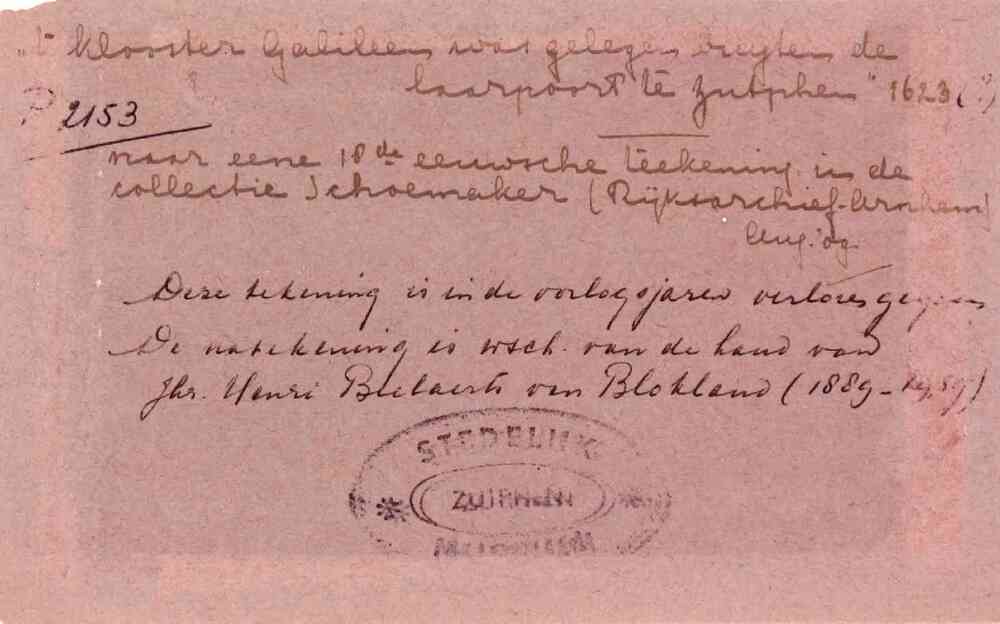 „'t Klooster Galileen was gelegen buyten de
laarpoort te Zutphen" 1623 (?)
P 2153
naar eene 18de eeuwsche teekening in de
collectie Schoemaker (Rijksarchief-Arnhem)
Aug. '09.
Deze tekening is in de oorlogsjaren verloren gegaan
De natekening is wsch. van de hand van
Jhr. Henri Beelaerts van Blokland (1889-1959)
STEDELIJK
ZUTPHEN
MUSEUM